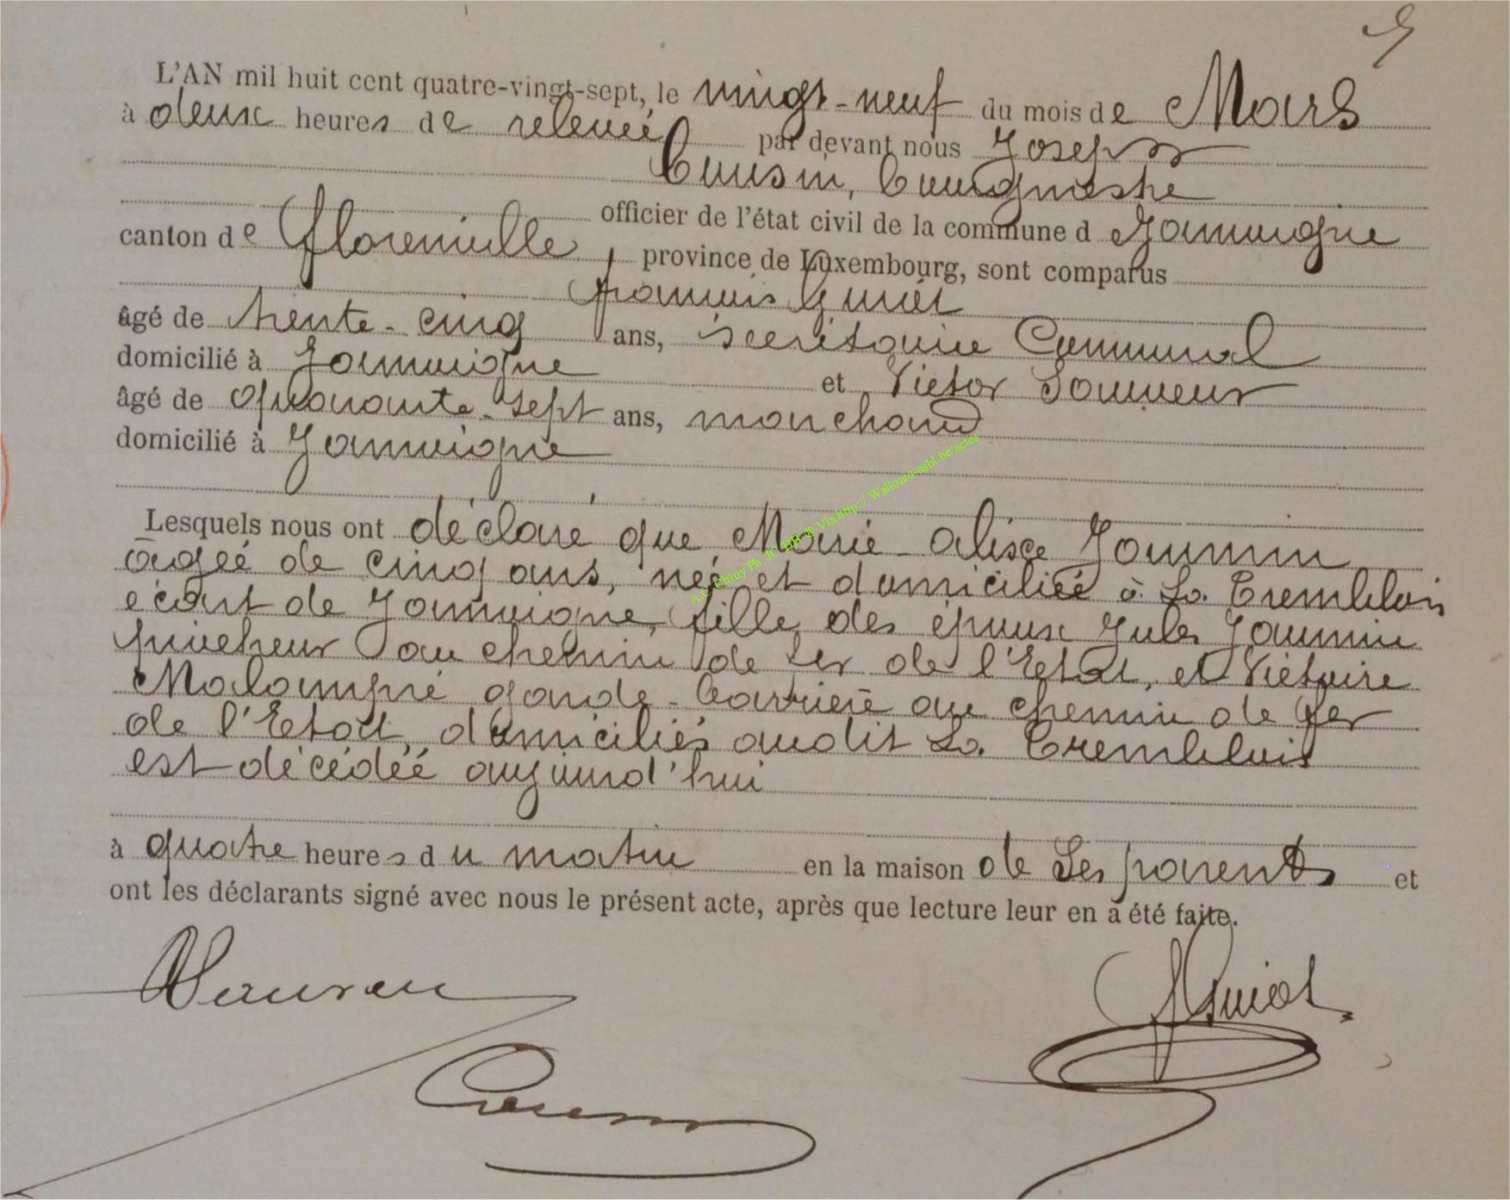 L'AN mil huit cent quatre-vingt-sept, le vingt-neuf du mois de Mars
à deux heures de relevée par devant nous Joseph
Cousin, Bourgmestre
officier de l'état civil de la commune d Jamoigne
canton de Florenville, province de Luxembourg, sont comparus
françois Guiot
âgé de trente-cinq ans, secrétaire Communal
domicilié à Jamoigne et Victor Sauveur
âgé de quarante-sept ans, marchand
domicilié à Jamoigne
Lesquels nous ont déclaré que Marie-alise Jaumin
âgée de cinq ans, née et domiciliée à La Tremblois
écart de Jamoigne, fille des époux Jules Jaumin
piocheur au chemin de fer de l'Etat, et Victoire
Malampré garde-barrière au chemin de fer
de l'Etat, domiciliés audit La Tremblois
est décédée aujourd'hui
à quatre heures du matin en la maison de Ses parents et
ont les déclarants signé avec nous le présent acte, après que lecture leur en a été faite.
VSauveur
Guiot
Cousin